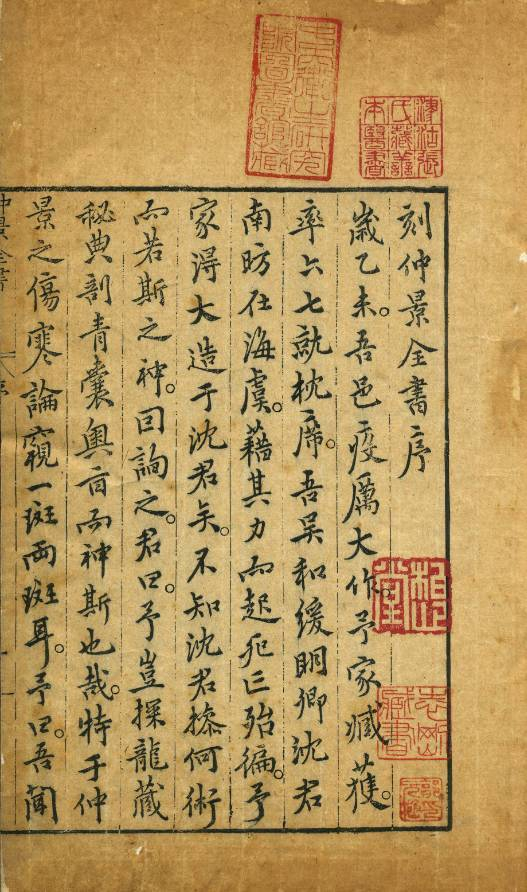 津沽張
氏藏善
本醫書
刻仲景全書序
歲乙未。吾邑疫厲大作。予家臧獲。
率六七就枕席。吾吳和緩明卿沈君
南昉在海虞。藉其力而起死亡殆徧。予
家得大造于沈君矣。不知沈君操何術
而若斯之神。因詢之。君曰。予豈探龍藏
秘典剖青囊奧旨而神斯也哉。特于仲
景之傷寒論窺一斑兩斑耳。予曰。吾聞
仲景全書